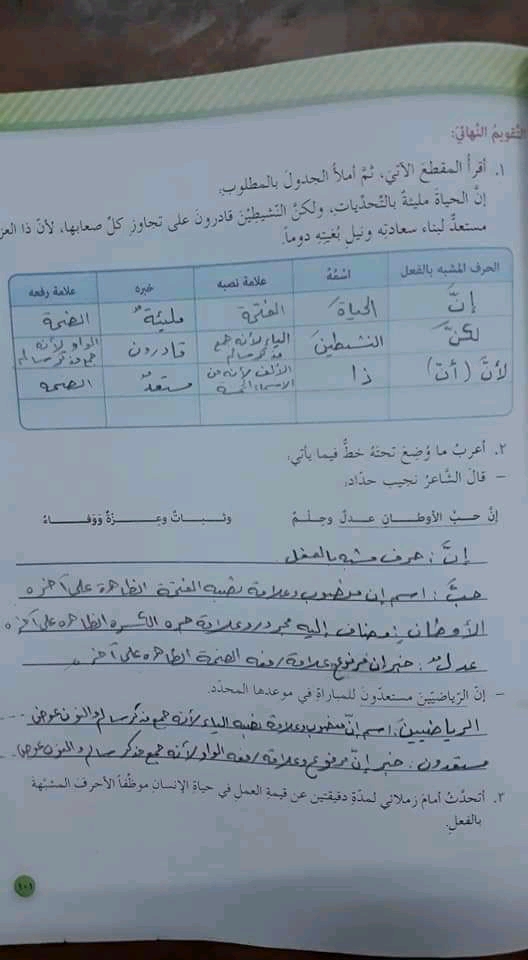 التقويمُ النّهائيّ:
١. أقرأُ المقطعَ الآتيَ، ثمَّ أملأُ الجدولَ بالمطلوب.
إنَّ الحياةَ مليئةٌ بالتّحدّياتِ، ولكنَّ النّشيطينَ قادرونَ على تجاوزِ كلِّ صعابِها، لأنّ ذا العز
مستعدٌّ لبناء سعادتِه ونيلِ بُغيتِهِ دوماً.
الحرف المُشبه بالفعل | اسْمُهُ | علامة نصبه | خبره | علامة رفعه
إنَّ | الحياةَ | الفتحة | مليئةٌ | الضمة
لكنَّ | النشيطينَ | الياء لأنه جمع مذكر سالم | قادرون | الواو لأنه جمع مذكر سالم
لأنَّ (أنّ) | ذا | الألف لأنه من الاسماء الخمسة | مستعدٌ | الضمة
٢. أعربُ ما وُضِعَ تحتَهُ خطٌّ فيما يأتي:
– قالَ الشّاعرُ نجيب حدّاد:
إنّ حبَّ الأوطـانِ عـدلٌ وحِلْمٌ وثبـاتٌ وعـزّةٌ وَوَفـاءُ
إنَّ: حرف مشبه بالفعل
حبَّ: اسم إن منصوب وعلامة نصبه الفتحة الظاهرة على آخره
الأوطان: مضاف إليه مجرور وعلامة جره الكسرة الظاهرة على آخره
عدلٌ: خبر إن مرفوع وعلامة رفعه الضمة الظاهره على آخره
– إنّ الرّياضيّينَ مستعدّونَ للمباراةِ في موعدها المحدّد.
الرياضيينَ: اسم إنّ منصوب وعلامة نصبه الياء لأنه جمع مذكر سالم والنون عوض
مستعدون: خبر إنّ مرفوع وعلامة رفعه الواو لأنه جمع مذكر سالم والنون عوض
٣. أتحدَّثُ أمامَ زملائي لمدّةِ دقيقتين عن قيمةِ العملِ في حياةِ الإنسانِ موظّفاً الأحرفَ المشبّهةَ
بالفعلِ.
١٠١